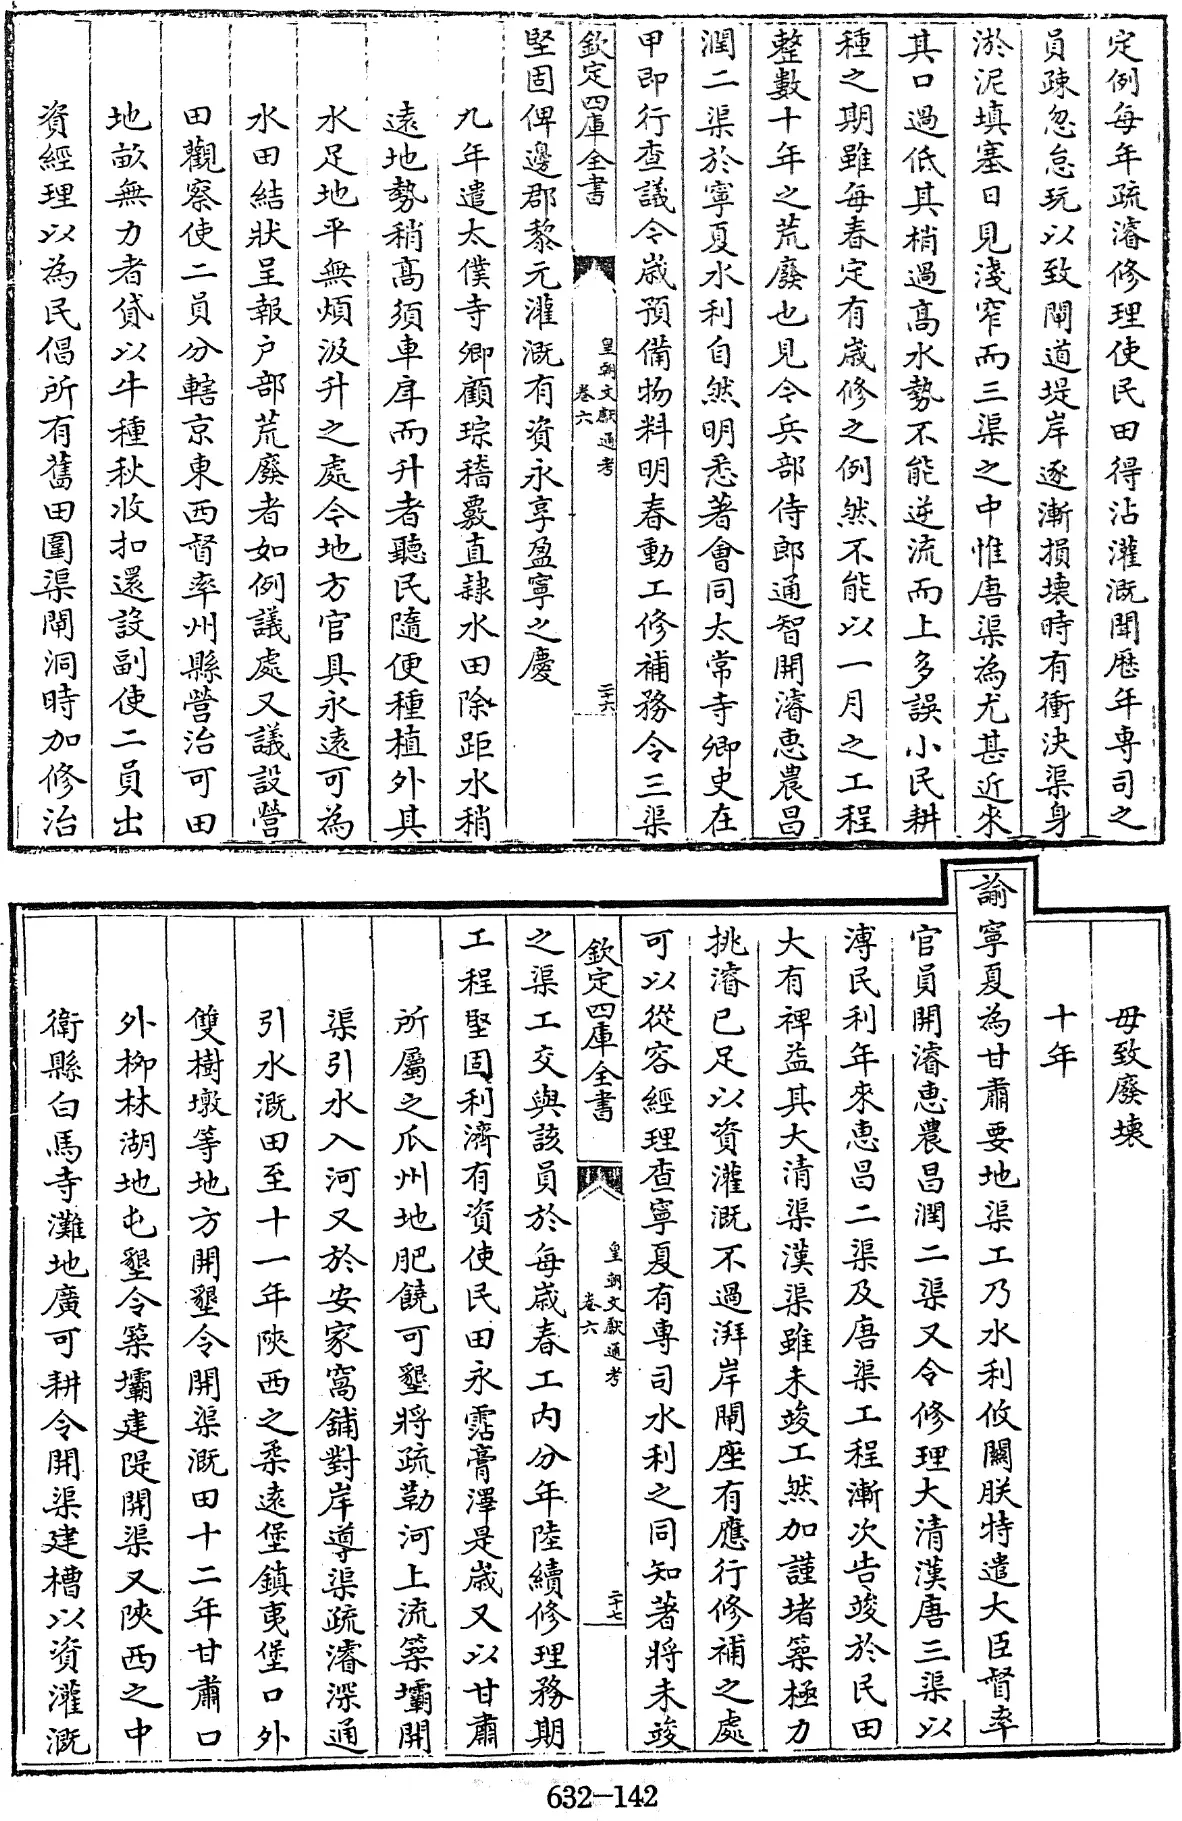 定例每年疏濬修理使民田得沾灌溉聞歷年專司之
員疎忽怠玩以致閘道堤岸逐漸損壊時有衝決渠身
淤泥填塞日見淺窄而三渠之中惟唐渠為尤甚近來
其口過低其梢過髙水勢不能逆流而上多誤小民耕
種之期雖每春定有嵗修之例然不能以一月之工程
整數十年之荒廢也見令兵部侍郎通智開濬惠農昌
潤二渠於寧夏水利自然明悉著會同太常寺卿史在
甲即行查議令嵗預備物料明春動工修補務令三渠
欽定四庫全書
皇朝文獻通考
卷六
二十六
堅固俾邊郡黎元灌溉有資永享盈寧之慶
九年遣太僕寺卿顧琮稽覈直隸水田除距水稍
遠地勢稍髙須車戽而升者聽民隨便種植外其
水足地平無煩汲升之處令地方官具永遠可為
水田結狀呈報户部荒廢者如例議處又議設營
田觀察使二員分轄京東西督率州縣營治可田
地畝無力者貸以牛種秋收扣還設副使二員出
資經理以為民倡所有舊田圍渠閘洞時加修治
毋致廢壊
十年
諭寧夏為甘肅要地渠工乃水利攸關朕特遣大臣督率
官員開濬惠農昌潤二渠又令修理大清漢唐三渠以
溥民利年來惠昌二渠及唐渠工程漸次告竣於民田
大有禆益其大清渠漢渠雖未竣工然加謹堵築極力
挑濬已足以資灌溉不過湃岸閘座有應行修補之處
可以從容經理查寧夏有專司水利之同知著將未竣
欽定四庫全書
皇朝文獻通考
卷六
二十七
之渠工交與該員於每嵗春工内分年陸續修理務期
工程堅固利濟有資使民田永霑膏澤是嵗又以甘肅
所屬之瓜州地肥饒可墾將疏勒河上流築壩開
渠引水入河又於安家窩舖對岸導渠疏濬深通
引水溉田至十一年陜西之柔遠堡鎮夷堡口外
雙樹墩等地方開墾令開渠溉田十二年甘肅口
外柳林湖地屯墾令築壩建隄開渠又陜西之中
衛縣白馬寺灘地廣可耕令開渠建槽以資灌溉
632-142